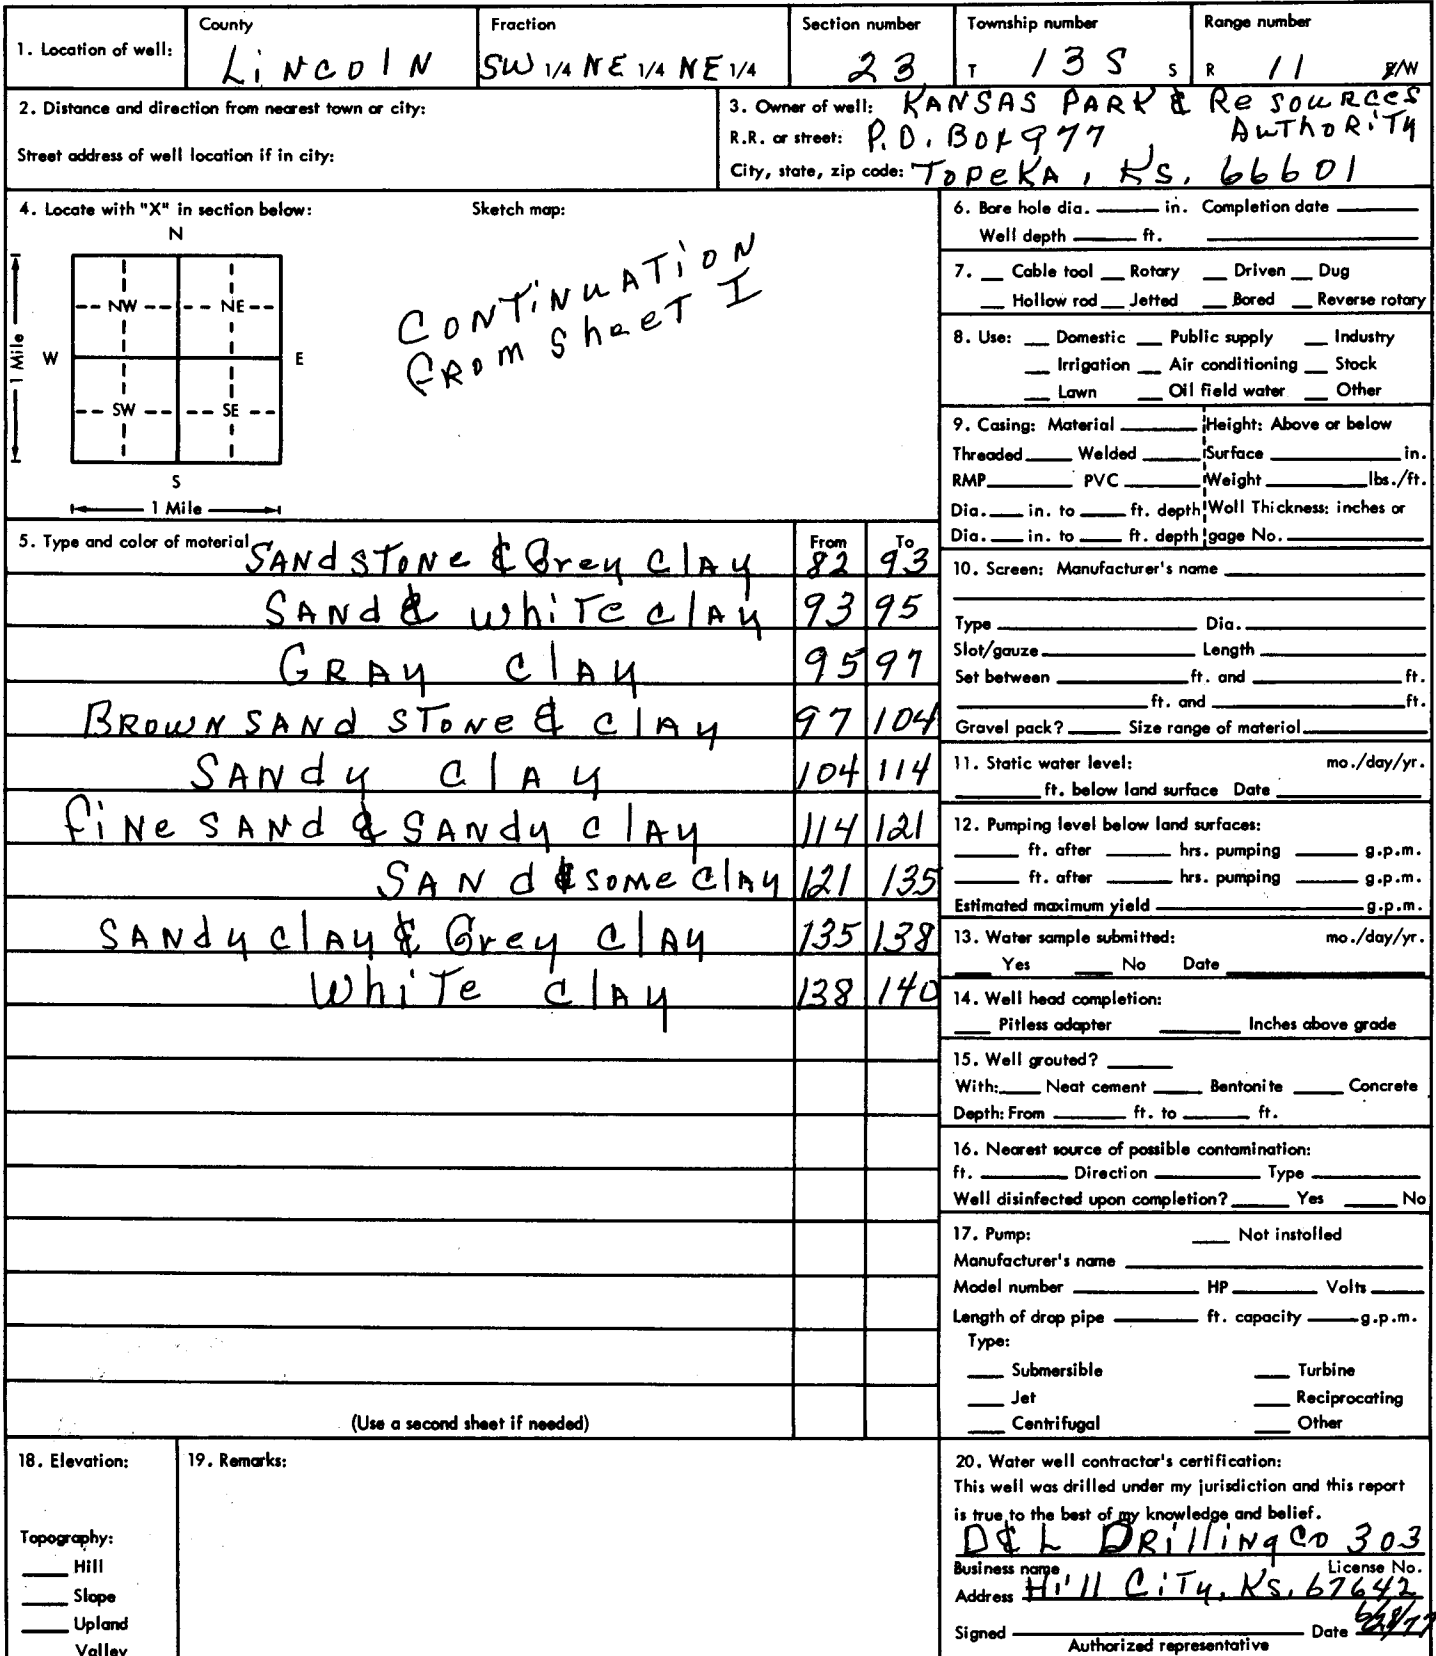 County Fraction Section number Township number Range number
1. Location of well: LiNcolN SW 1/4 NE 1/4 NE 1/4 23 T 13 S S R 11 E/W
2. Distance and direction from nearest town or city:
Street address of well location if in city:
3. Owner of well: KANSAS PARK & ReSOURCeS
AuThoRiTy
R.R. or street: P.O. Box 977
City, state, zip code: TopeKA, KS. 66601
4. Locate with "X" in section below: Sketch map:
N
NW NE
W E
1 Mile
SW SE
S
1 Mile
CONTiNuATioN
fRom SheeT I
5. Type and color of material From To
SANdSTONe & Grey ClAy 82 93
SANd & whiTe clAy 93 95
GRAy ClAy 95 97
BROWN SANd STONe & ClAy 97 104
SANdy ClAy 104 114
fiNe SANd & SANdy ClAy 114 121
SANd & some ClAy 121 135
SANdy ClAy & Grey ClAy 135 138
WhiTe ClAy 138 140
(Use a second sheet if needed)
6. Bore hole dia. in. Completion date
Well depth ft.
7. Cable tool Rotary Driven Dug
Hollow rod Jetted Bored Reverse rotary
8. Use: Domestic Public supply Industry
Irrigation Air conditioning Stock
Lawn Oil field water Other
9. Casing: Material Height: Above or below
Threaded Welded Surface in.
RMP PVC Weight lbs./ft.
Dia. in. to ft. depth Woll Thickness: inches or
Dia. in. to ft. depth gage No.
10. Screen: Manufacturer's name
Type Dia.
Slot/gauze Length
Set between ft. and ft.
ft. and ft.
Gravel pack? Size range of material
11. Static water level: mo./day/yr.
ft. below land surface Date
12. Pumping level below land surfaces:
ft. after hrs. pumping g.p.m.
ft. after hrs. pumping g.p.m.
Estimated maximum yield g.p.m.
13. Water sample submitted: mo./day/yr.
Yes No Date
14. Well head completion:
Pitless adapter Inches above grade
15. Well grouted?
With: Neat cement Bentonite Concrete
Depth: From ft. to ft.
16. Nearest source of possible contamination:
ft. Direction Type
Well disinfected upon completion? Yes No
17. Pump: Not installed
Manufacturer's name
Model number HP Volts
Length of drop pipe ft. capacity g.p.m.
Type:
Submersible Turbine
Jet Reciprocating
Centrifugal Other
18. Elevation:
Topography:
Hill
Slope
Upland
Valley
19. Remarks:
20. Water well contractor's certification:
This well was drilled under my jurisdiction and this report
is true to the best of my knowledge and belief.
D & L DRilliNg Co 303
Business name License No.
Address Hill CiTy, Ks. 67642
Signed Date 6/28/77
Authorized representative